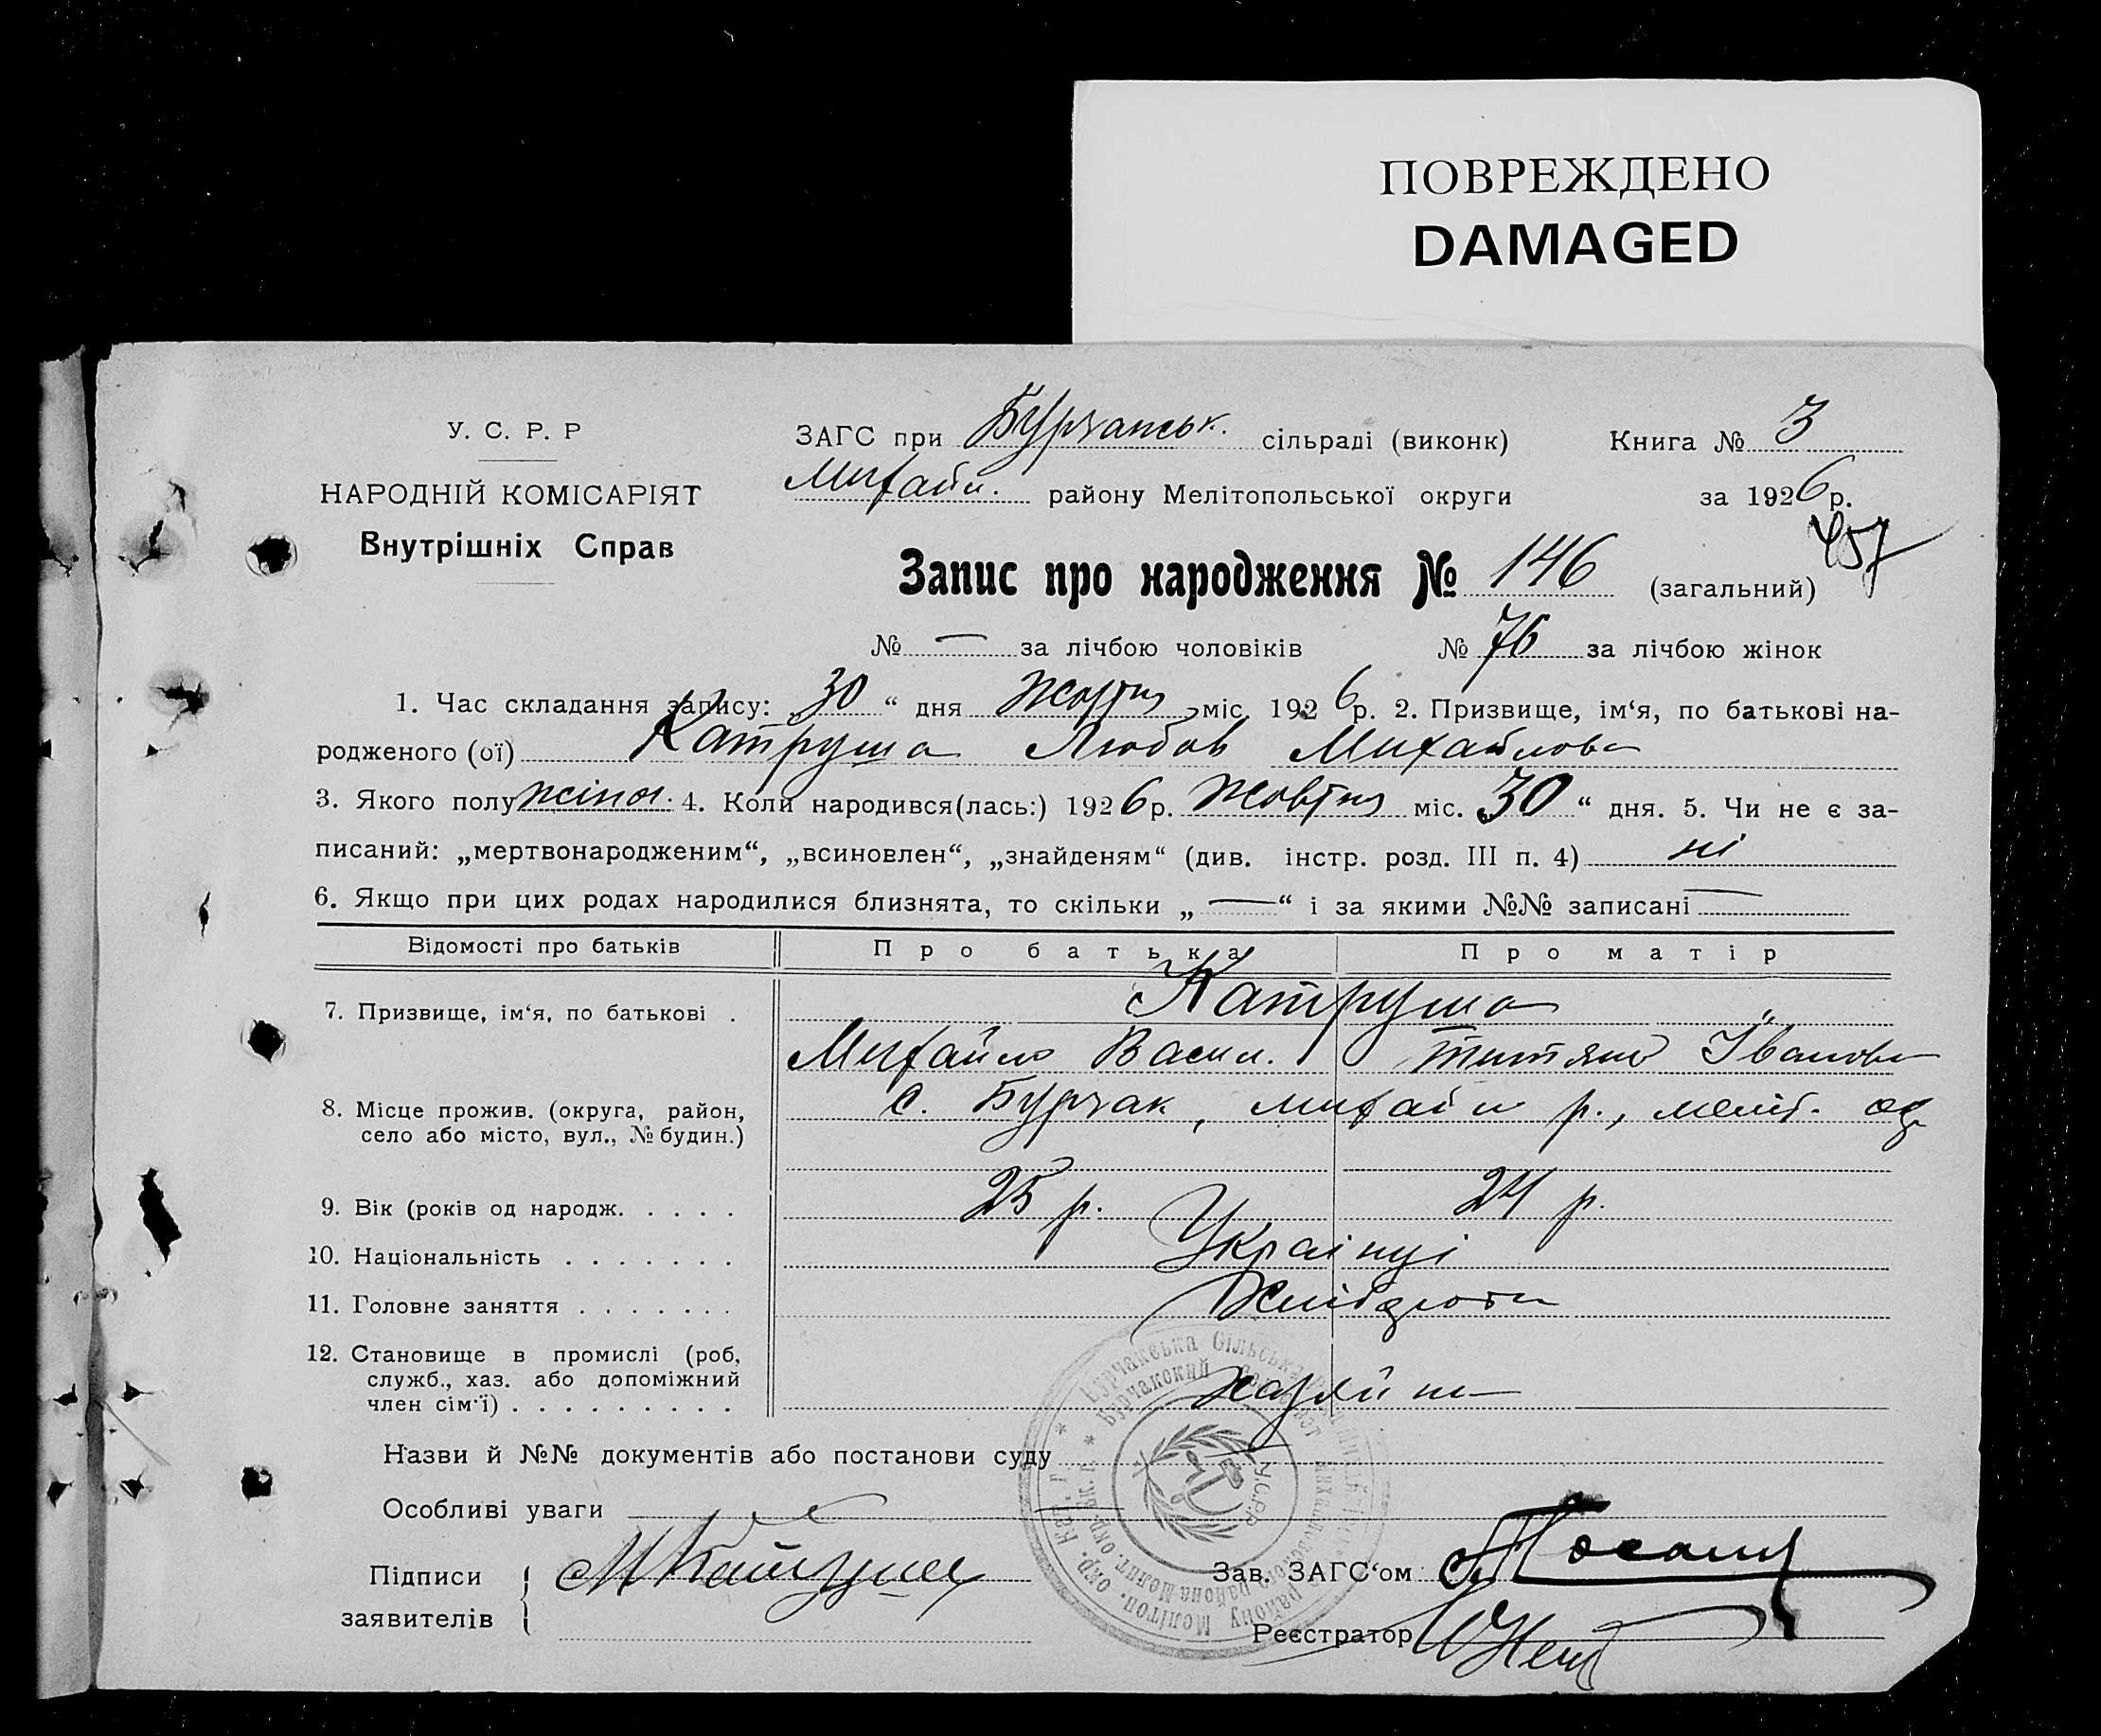 ПОВРЕЖДЕНО
DAMAGED
У. С. Р. Р
НАРОДНІЙ КОМІСАРІЯТ
Внутрішніх Справ
ЗАГС при Бурчанськ. сільраді (виконк) Книга № 3
Михайл. району Мелітопольської округи за 1926 р.
457
Запис про народження № 146 (загальний)
№ — за лічбою чоловіків № 76 за лічбою жінок
1. Час складання запису: 30 “ дня Жовтня міс. 1926 р. 2. Призвище, ім‘я, по батькові на-
родженого (ої) Катруша Любов Михайлова
3. Якого полу жіноч. 4. Коли народився(лась:) 1926 р. Жовтня міс. 30 “ дня. 5. Чи не є за-
писаний: „мертвонародженим“, „всиновлен“, „знайденям“ (див. інстр. розд. III п. 4) ні
6. Якщо при цих родах народилися близнята, то скільки „ — “ і за якими №№ записані —
Відомості про батьків Про батька Про матір
7. Призвище, ім‘я, по батькові . Катруша „
Михайло Васил. Титяна Іванова
8. Місце прожив. (округа, район, с. Бурчак, михайл р., меліт. окр
село або місто, вул., № будин.)
9. Вік (років од народж. . . . . 25 р. 24 р.
10. Національність . . . . . . . Українці
11. Головне заняття . . . . . . . Хлібороби
12. Становище в промислі (роб,
служб., хаз. або допоміжний Хазяїни
член сім‘ї) . . . . . . . . .
Назви й №№ документів або постанови суду
Особливі уваги
Підписи
заявителів
М Катруша
Зав. ЗАГС‘ом
Реєстратор
Бурчакська Сільська
Бурчакский
У.С.Р.Р.